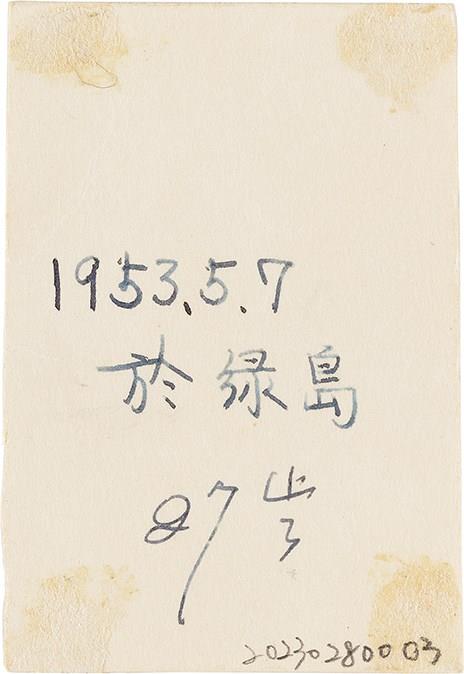 1953.5.7
於緑島
27才
20230280003